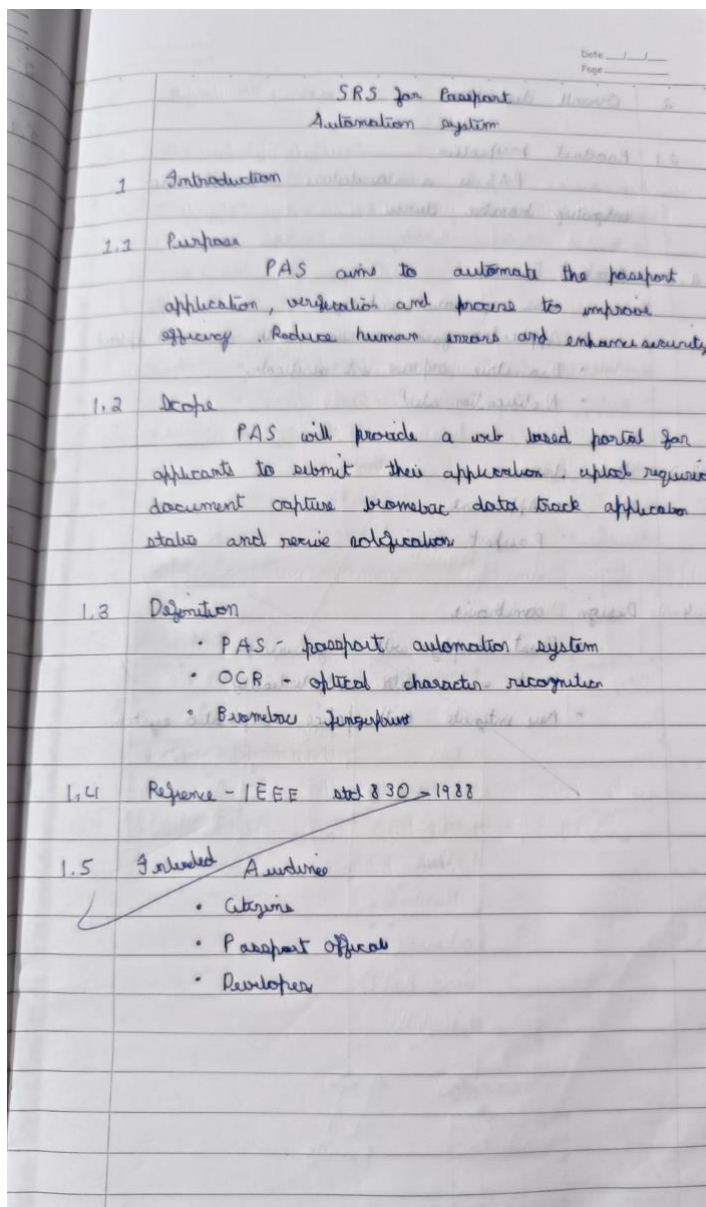 Date __/__/__
Page
SRS for Passport
Automation system
1 Introduction
1.1 Purpose
PAS aims to automate the passport
application, verification and process to improve
efficiency. Reduce human errors and enhance security
1.2 Scope
PAS will provide a web based portal for
applicants to submit their application, upload required
document capture biometric data track application
status and recive notification
1.3 Definition
• PAS - passport automation system
• OCR - optical character recognition
• Biometric fingerprint
1.4 Refrence - IEEE std 830 - 1988
1.5 Intended Audience
• Citizens
• Passport offical
• Developer